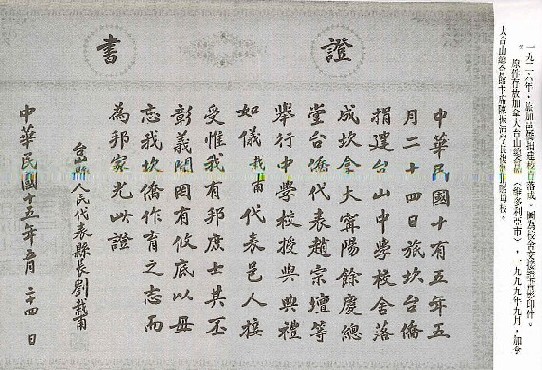 一九二六年，旅加邑僑捐建校舍落成，圖為校舍交接證書影印件。
原件存放加拿大台山總會館（維多利亞市）。一九九九年九月，加拿
大台山總會館主席陳
證書
中華民國十有五年五
月二十四日旅坎台僑
捐建台山中學校舍落
成坎拿大甯陽餘慶總
堂台僑代表趙宗壇等
舉行中學校授與典禮
如儀栽甫代表邑人接
受惟我有邦庶士其丕
彰義聞罔有攸底以毋
忘我坎僑作育之志而
為邦家光此證
台山縣人民代表縣長劉栽甫
中華民國十五年五月二十四日